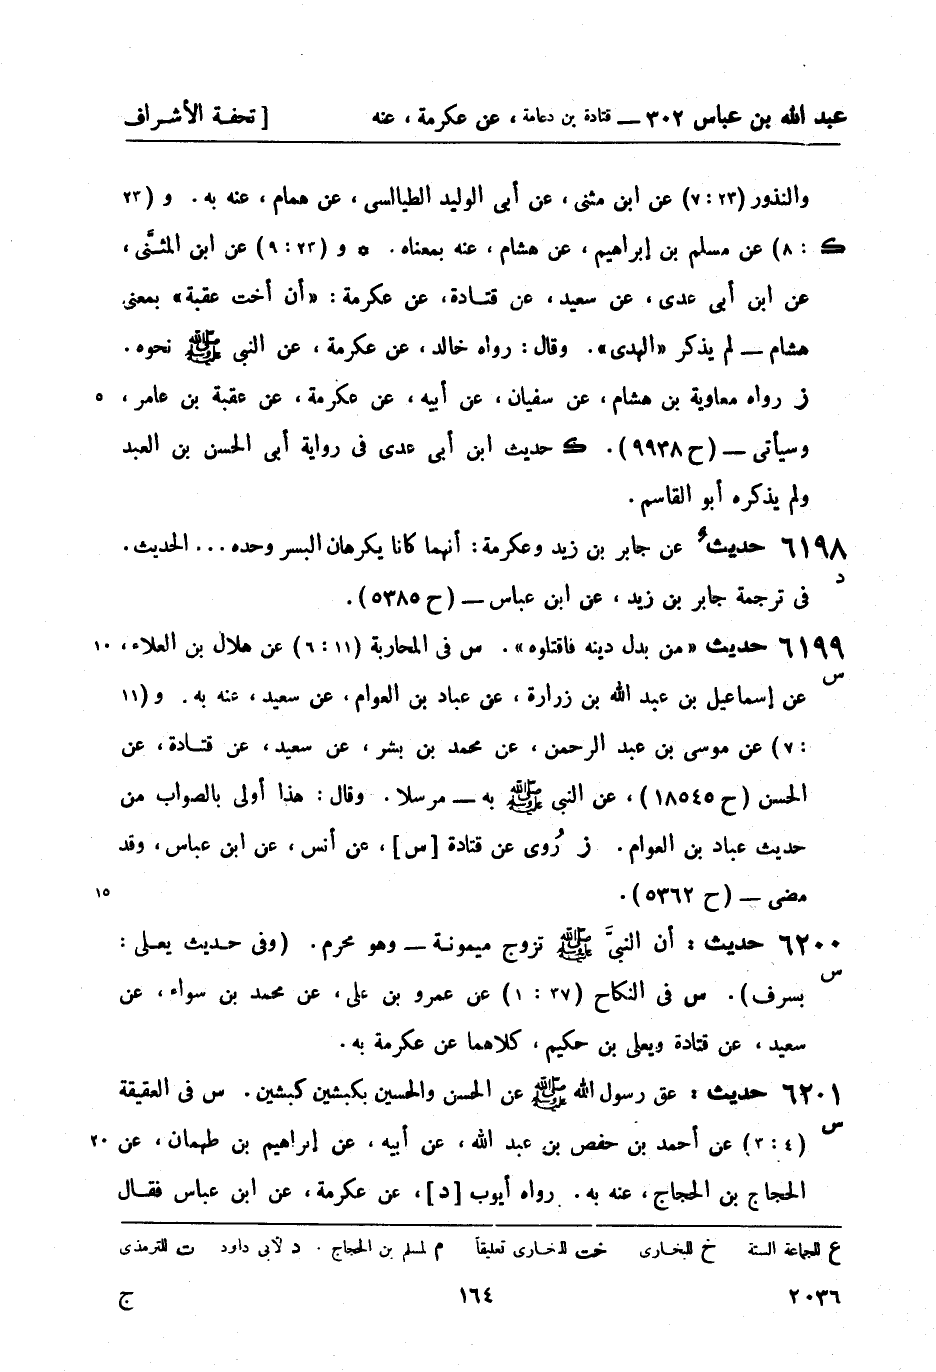 عبد الله بن عباس ٣٠٢ ــ قتادة بن دعامة ، عن عكرمة ، عنه [ تحفة الأشراف
والنذور (٢٣ : ٧) عن ابن مثنى ، عن أبى الوليد الطيالسى ، عن همام ، عنه به . و (٢٣
ك : ٨) عن مسلم بن إبراهيم ، عن هشام ، عنه بمعناه . * و (٢٣ : ٩) عن ابن المثنَّى ،
عن ابن أبى عدى ، عن سعيد ، عن قتادة ، عن عكرمة : «أن أخت عقبة» بمعنى
هشام ــ لم يذكر «الهدى» . وقال : رواه خالد ، عن عكرمة ، عن النبى ﷺ نحوه .
ز رواه معاوية بن هشام ، عن سفيان ، عن أبيه ، عن عكرمة ، عن عقبة بن عامر ، ٥
وسيأتى ــ (ح ٩٩٣٨) . ك حديث ابن أبى عدى فى رواية أبى الحسن بن العبد
ولم يذكره أبو القاسم .
٦١٩٨ حديث عن جابر بن زيد وعكرمة : أنهما كانا يكرهان البسر وحده ... الحديث .
د فى ترجمة جابر بن زيد ، عن ابن عباس ــ (ح ٥٣٨٥) .
٦١٩٩ حديث «من بدل دينه فاقتلوه» . س فى المحاربة (١١ : ٦) عن هلال بن العلاء ، ١٠
س عن إسماعيل بن عبد الله بن زرارة ، عن عباد بن العوام ، عن سعيد ، عنه به . و (١١
: ٧) عن موسى بن عبد الرحمن ، عن محمد بن بشر ، عن سعيد ، عن قتادة ، عن
الحسن (ح ١٨٥٤٥) ، عن النبى ﷺ به ــ مرسلا . وقال : هذا أولى بالصواب من
حديث عباد بن العوام . ز رُوى عن قتادة [س] ، عن أنس ، عن ابن عباس ، وقد
مضى ــ (ح ٥٣٦٢) . ١٥
٦٢٠٠ حديث : أن النبىَّ ﷺ تزوج ميمونة ــ وهو محرم . (وفى حديث يعلى :
س بسرف) . س فى النكاح (٣٧ : ١) عن عمرو بن على ، عن محمد بن سواء ، عن
سعيد ، عن قتادة ويعلى بن حكيم ، كلاهما عن عكرمة به .
٦٢٠١ حديث : عق رسول الله ﷺ عن الحسن والحسين بكبشين كبشين . س فى العقيقة
س (٤ : ٣) عن أحمد بن حفص بن عبد الله ، عن أبيه ، عن إبراهيم بن طهمان ، عن ٢٠
الحجاج بن الحجاج ، عنه به . رواه أيوب [د] ، عن عكرمة ، عن ابن عباس فقال
ع للجماعة الستة خ للبخارى خت للبخارى تعليقاً م لمسلم بن الحجاج . د لأبى داود ت للترمذى
٢٠٣٦ ١٦٤ ج